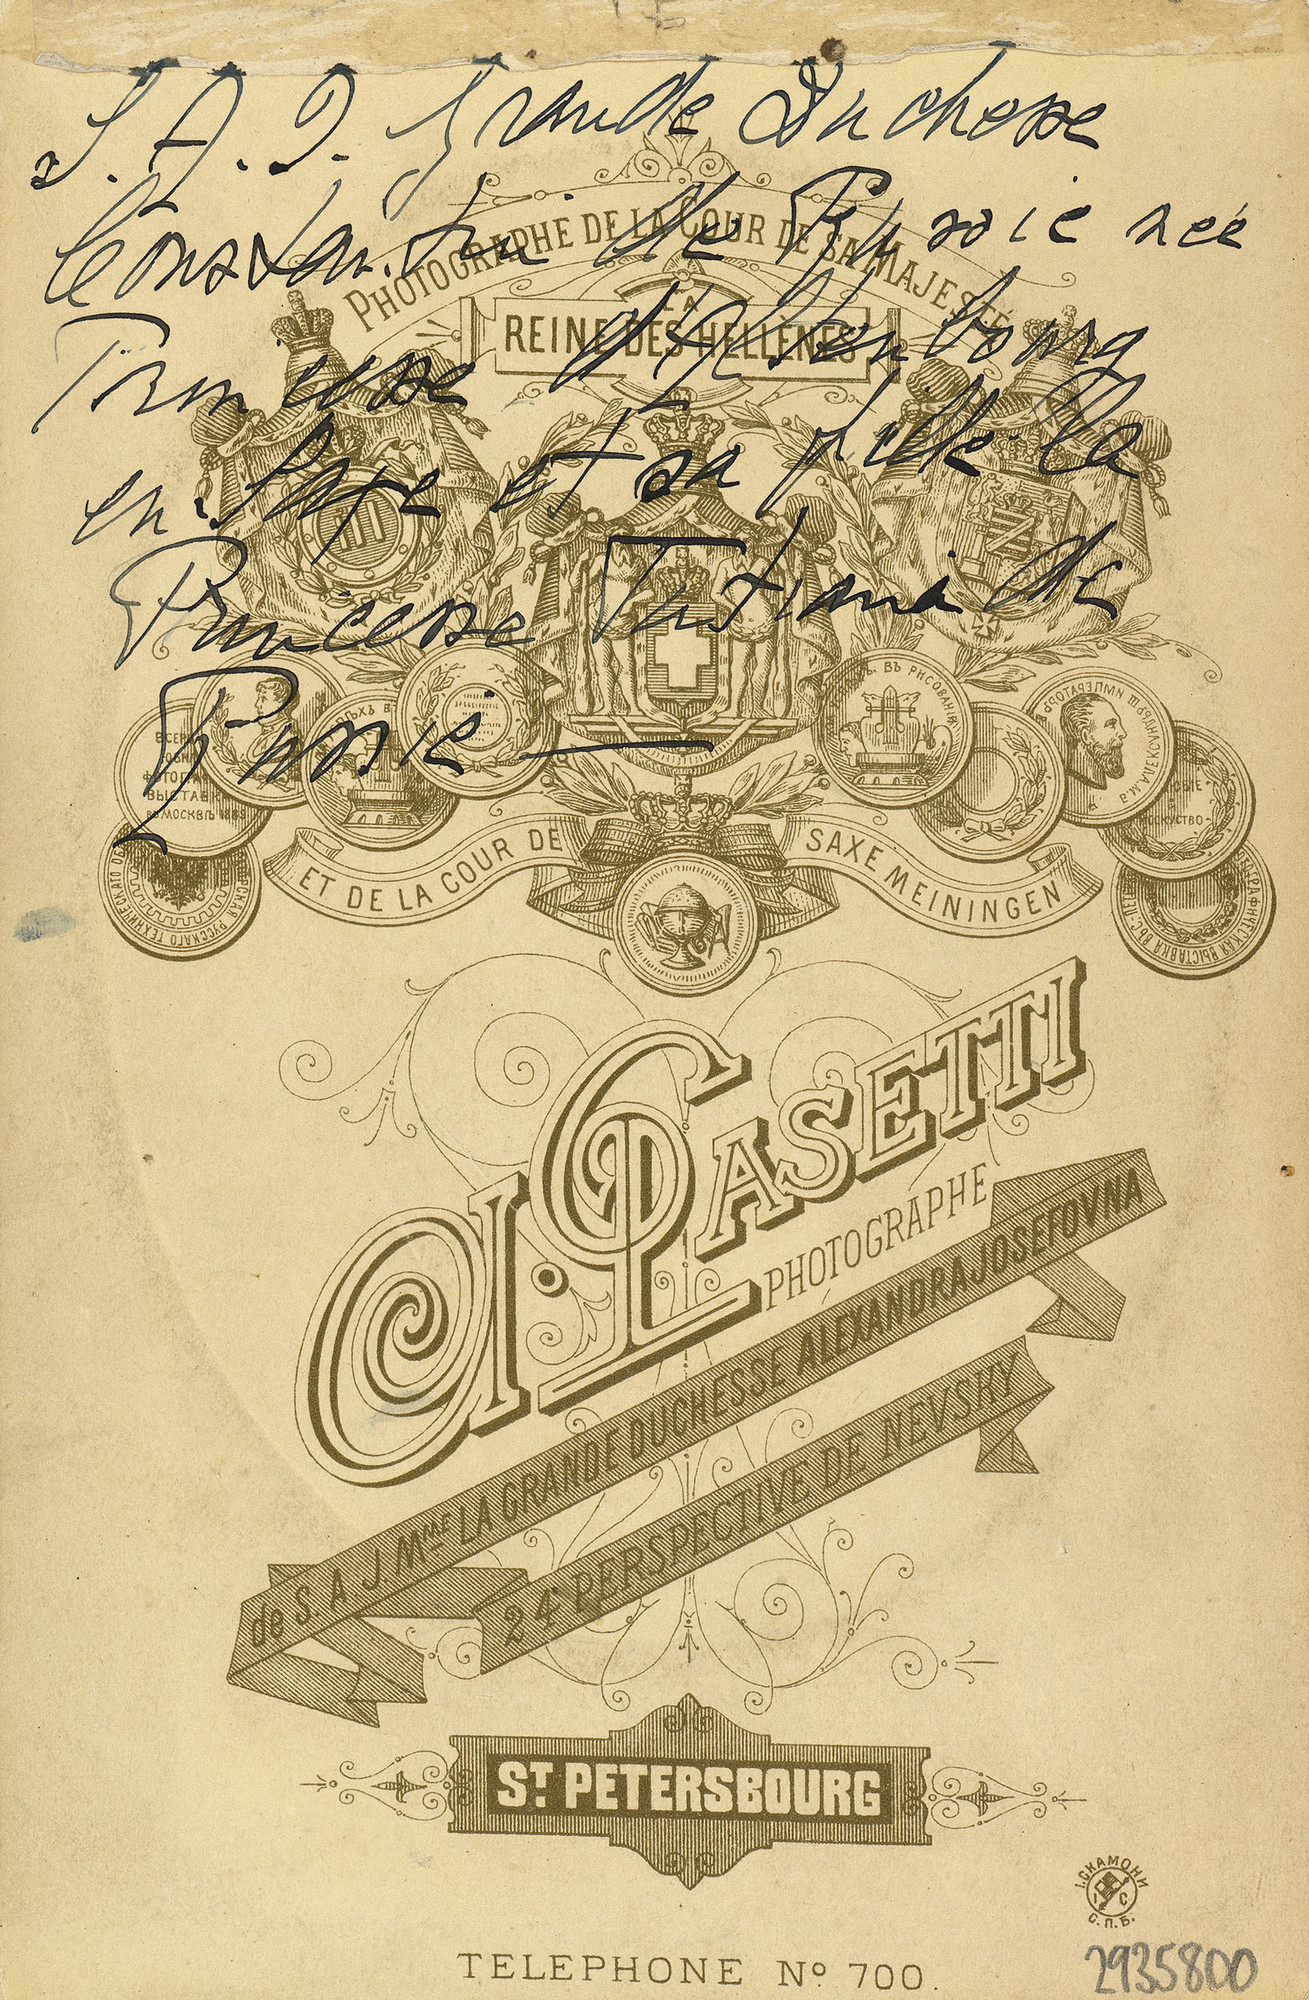 S. A. I. Grande Duchesse
Constantin de Russie née
Princesse d'Altenbourg
en Saxe et sa fille la
Princesse Tatiana de
Russie
PHOTOGRAPHE DE LA COUR DE SA MAJESTÉ
LA
REINE DES HELLÈNES
ВЪ РИСОВАНІИ
ИМПЕРАТОРЪ
ВЫСТАВК
ВЪ МОСКВѢ 1882
ET DE LA COUR DE SAXE MEININGEN
A. PASETTI
PHOTOGRAPHE
de S. A. J. Mme LA GRANDE DUCHESSE ALEXANDRA JOSEFOVNA
24 PERSPECTIVE DE NEVSKY
ST PETERSBOURG
І. СКАМОНИ
І С
С.П.Б.
TELEPHONE No 700.
2935800